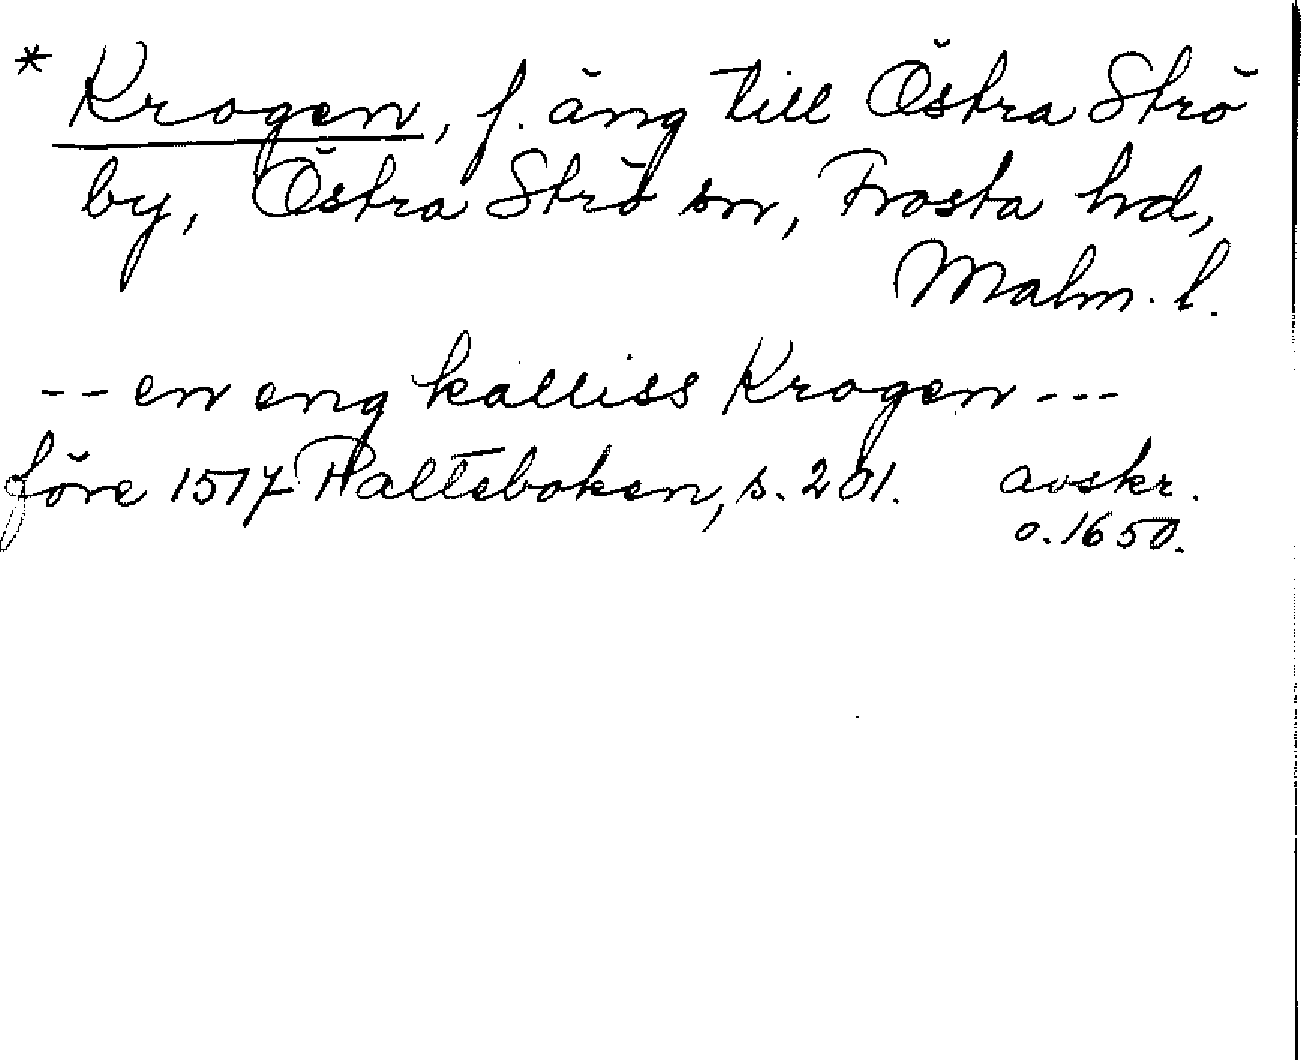 * Krogen, f. äng till Östra Strö
by, Östra Strö sn, Frosta hd,
Malm. l.
-- en eng kalliss Krogen ---
före 1517 Palteboken, s. 201. avskr.
o. 1650.